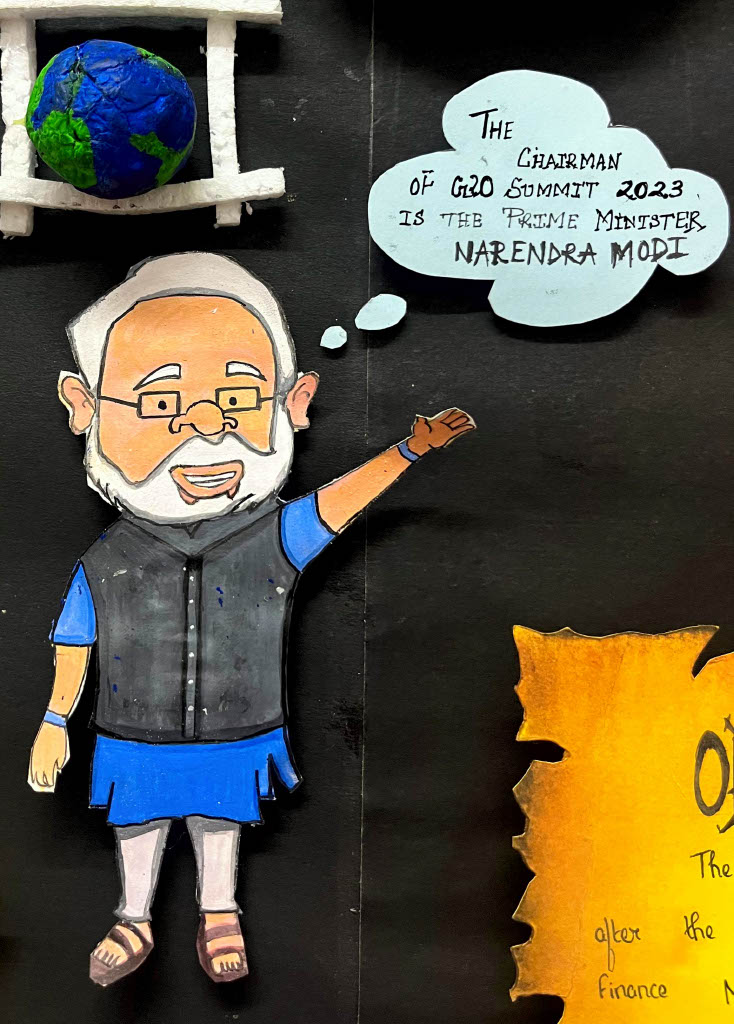 THE
CHAIRMAN
OF G20 SUMMIT 2023
IS THE PRIME MINISTER
NARENDRA MODI
The
after the
Finance